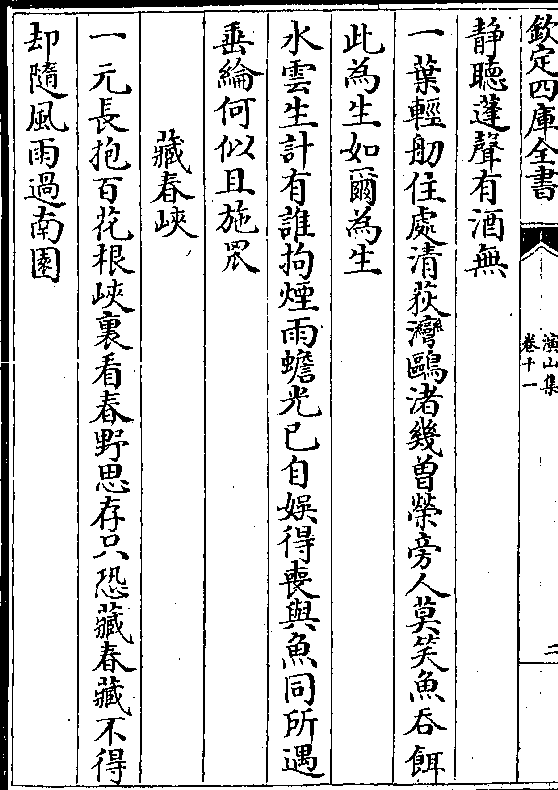 欽定四庫全書
演山集
卷十一
二
靜聽蓬聲有酒無
一葉輕舠住處清荻灣鷗渚幾曽榮旁人莫笑魚吞餌
此為生如爾為生
水雲生計有誰拘煙雨蟾光已自娛得喪與魚同所遇
垂綸何似且施罛
藏春峽
一元長抱百花根峽裏看春野思存只恐藏春藏不得
却隨風雨過南園